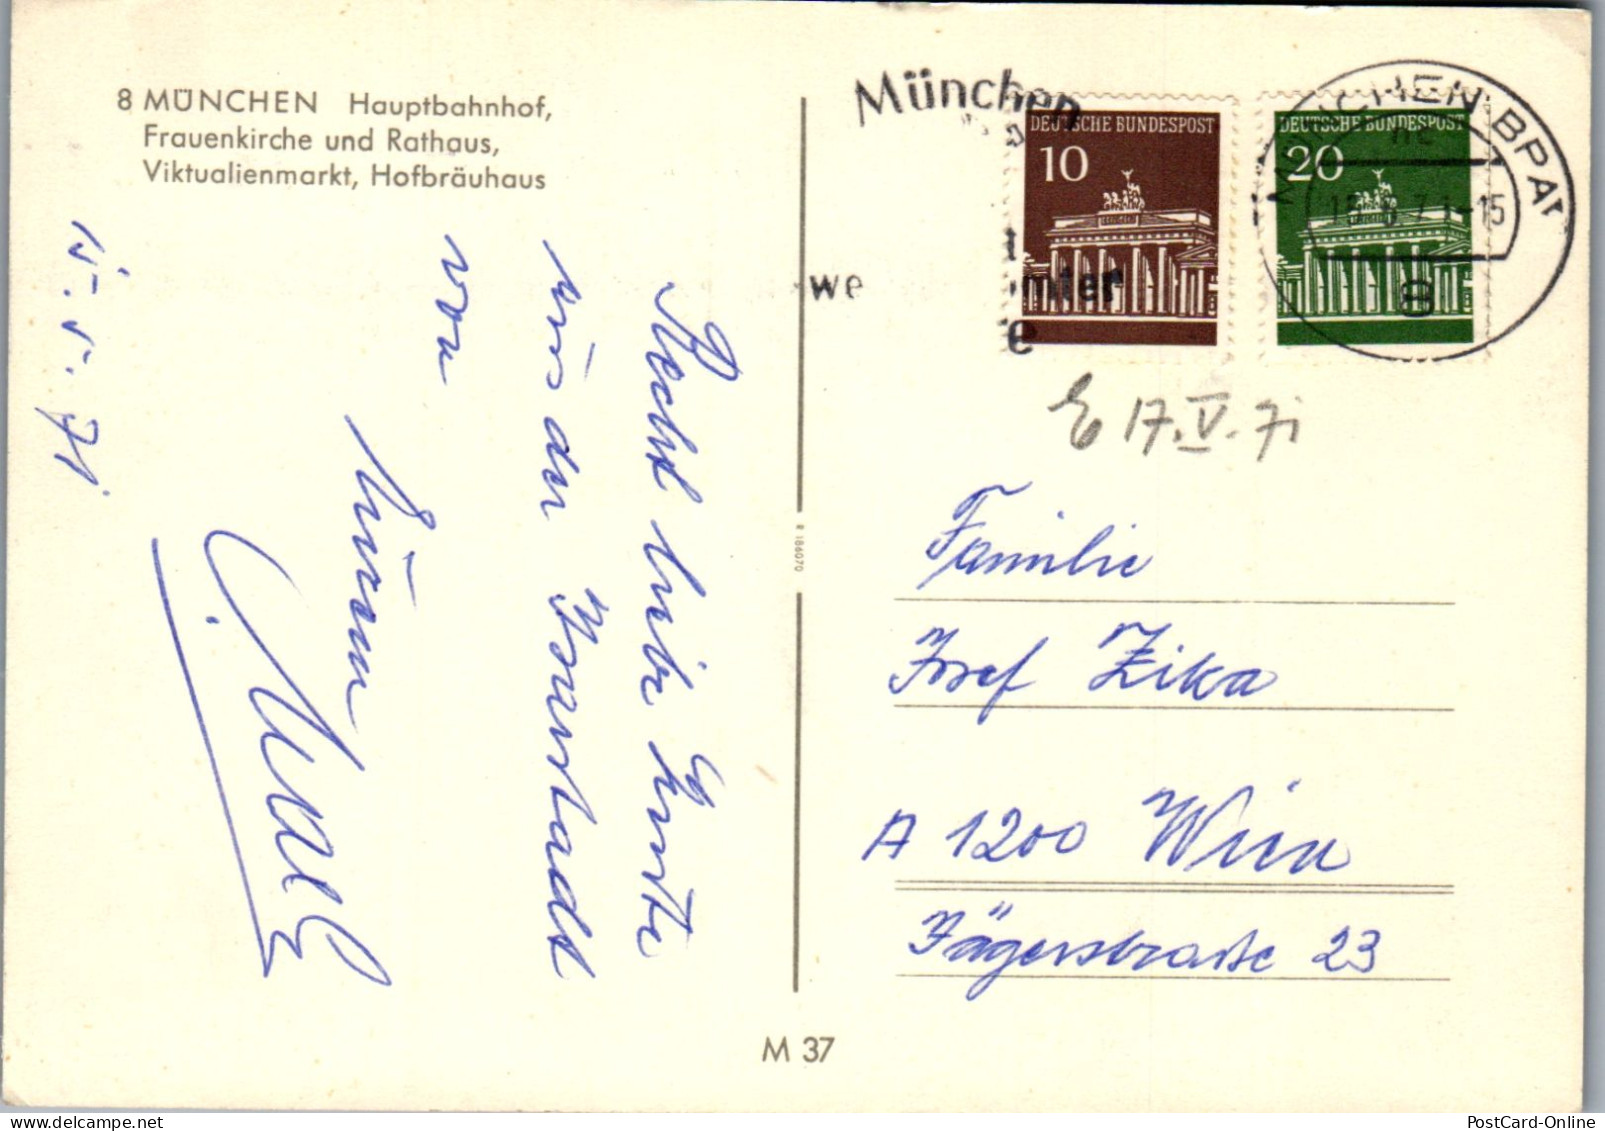 8 MÜNCHEN Hauptbahnhof,
Frauenkirche und Rathaus,
Viktualienmarkt, Hofbräuhaus
15. 5. 71.
Recht liebe Grüße
aus der Isarstadt
von
Eurem
München
we
DEUTSCHE BUNDESPOST
10
DEUTSCHE BUNDESPOST
20
MÜNCHEN BPA
8
E 17. V. 71
Familie
Josef Zika
A 1200 Wien
Jägerstraße 23
R 186070
M 37
PostCard-Online